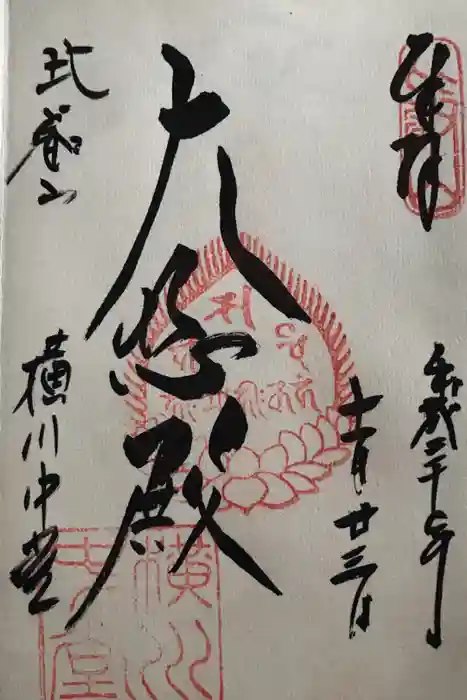 奉拝
平成三十年
十月廿三日
大悲殿
比叡山
横川中堂
横川
中堂